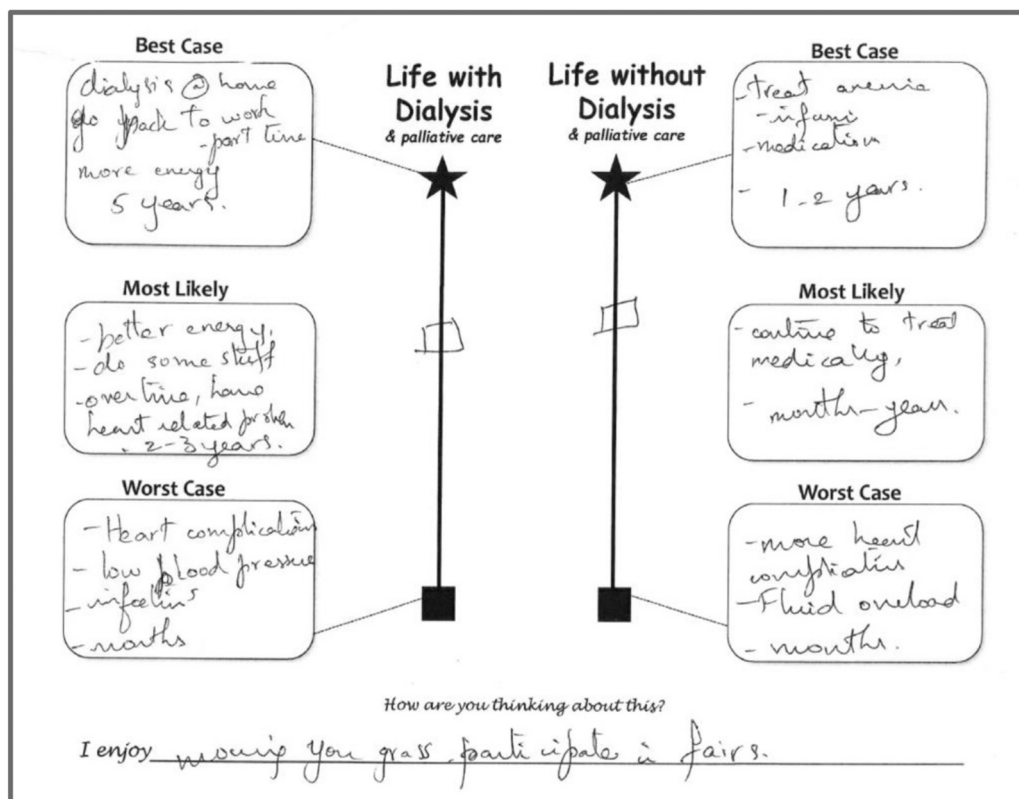 Best Case
dialysis @ home
go back to work
- part time
more energy
5 years.
Most Likely
- better energy,
- do some stuff
- over time, have
heart related problem
. 2-3 years.
Worst Case
- Heart complication
- low blood pressure
- infections
- months
Life with
Dialysis
& palliative care
Life without
Dialysis
& palliative care
Best Case
- treat anemia
- medication
- 1-2 years.
Most Likely
- continue to treat
medically,
- months-years.
Worst Case
- more heart
complications
- Fluid overload
- months.
How are you thinking about this?
I enjoy mowing you grass participate in fairs.